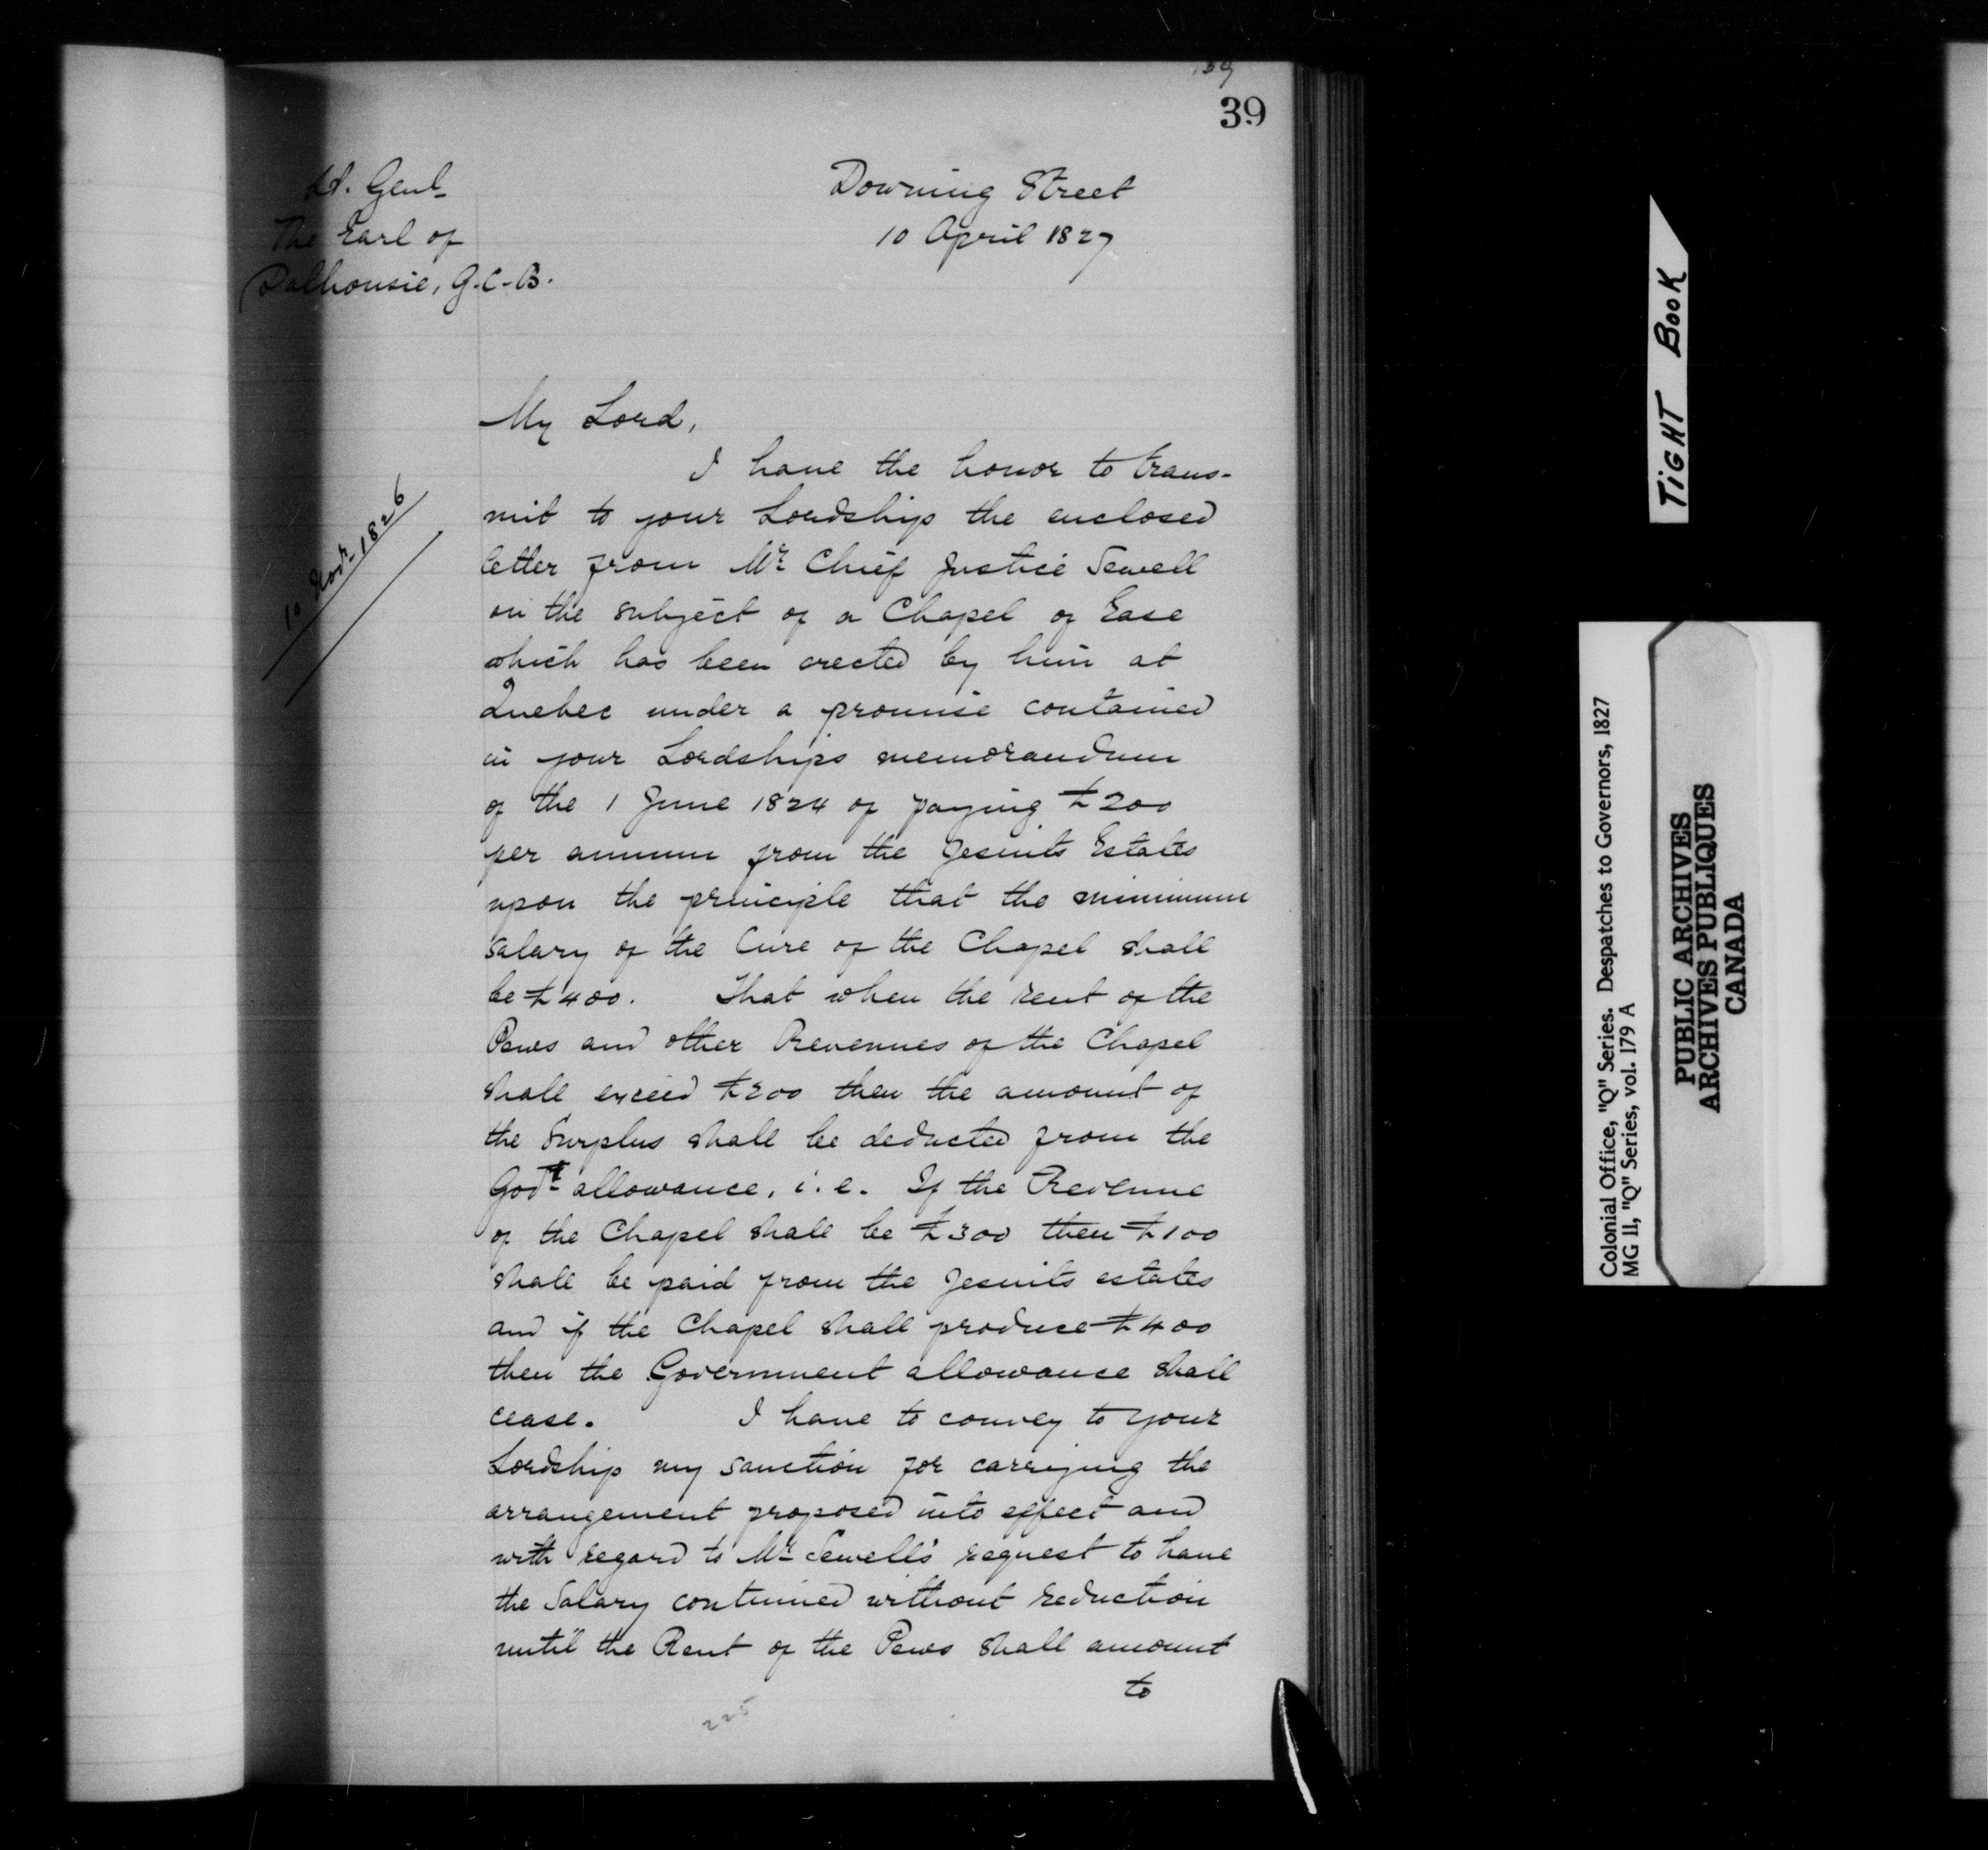 39
39
Lt. Genl
The Earl of
Dalhousie, G.C.B.
Downing Street
10 April 1827
My Lord,
I have the honor to trans-
mit to your Lordship the enclosed
letter from Mr Chief Justice Sewell
on the subject of a Chapel of Ease
which has been erected by him at
Quebec under a promise contained
in your Lordships memorandum
of the 1 June 1824 of paying £200
per annum from the Jesuits Estates
upon the principle that the minimum
salary of the Cure of the Chapel shall
be £400. That when the rent of the
Pews and other Revenues of the Chapel
shall exceed £200 then the amount of
the Surplus shall be deducted from the
Govt allowance, i.e. If the Revenue
of the Chapel shall be £300 then £100
shall be paid from the Jesuits estates
and if the Chapel shall produce £400
then the Government allowance shall
cease. I have to convey to your
Lordship my sanction for carrying the
arrangement proposed into effect and
with regard to Mr Sewell's request to have
the Salary continued without reduction
until the Rent of the Pews shall amount
to
10 Novr 1826
225
TIGHT BOOK
Colonial Office, "Q" Series. Despatches to Governors, 1827
MG 11, "Q" Series, vol. 179 A
PUBLIC ARCHIVES
ARCHIVES PUBLIQUES
CANADA